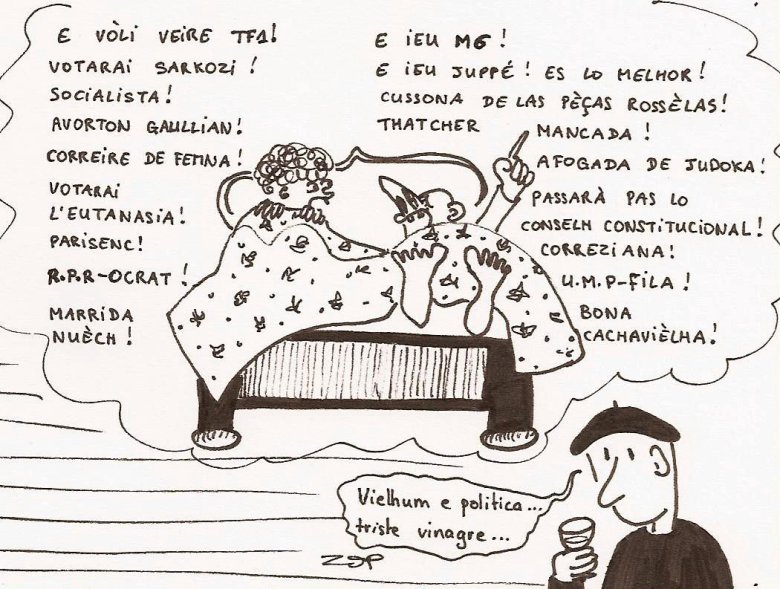 E VÒLI VEIRE TF1!
VOTARAI SARKOZI !
SOCIALISTA!
AVORTON GAULLIAN!
CORREIRE DE FEMNA!
VOTARAI
L'EUTANASIA!
PARISENC!
R.P.R-OCRAT !
MARRIDA
NUÈCH !
E IEU M6 !
E IEU JUPPÉ ! ES LO MELHOR!
CUSSONA DE LAS PÈÇAS ROSSÈLAS!
THATCHER MANCADA !
AFOGADA DE JUDOKA!
PASSARÀ PAS LO
CONSELH CONSTITUCIONAL!
CORREZIANA!
U.M.P-FILA !
BONA
CACHAVIÈLHA!
Vielhum e politica...
triste vinagre...
ZJP